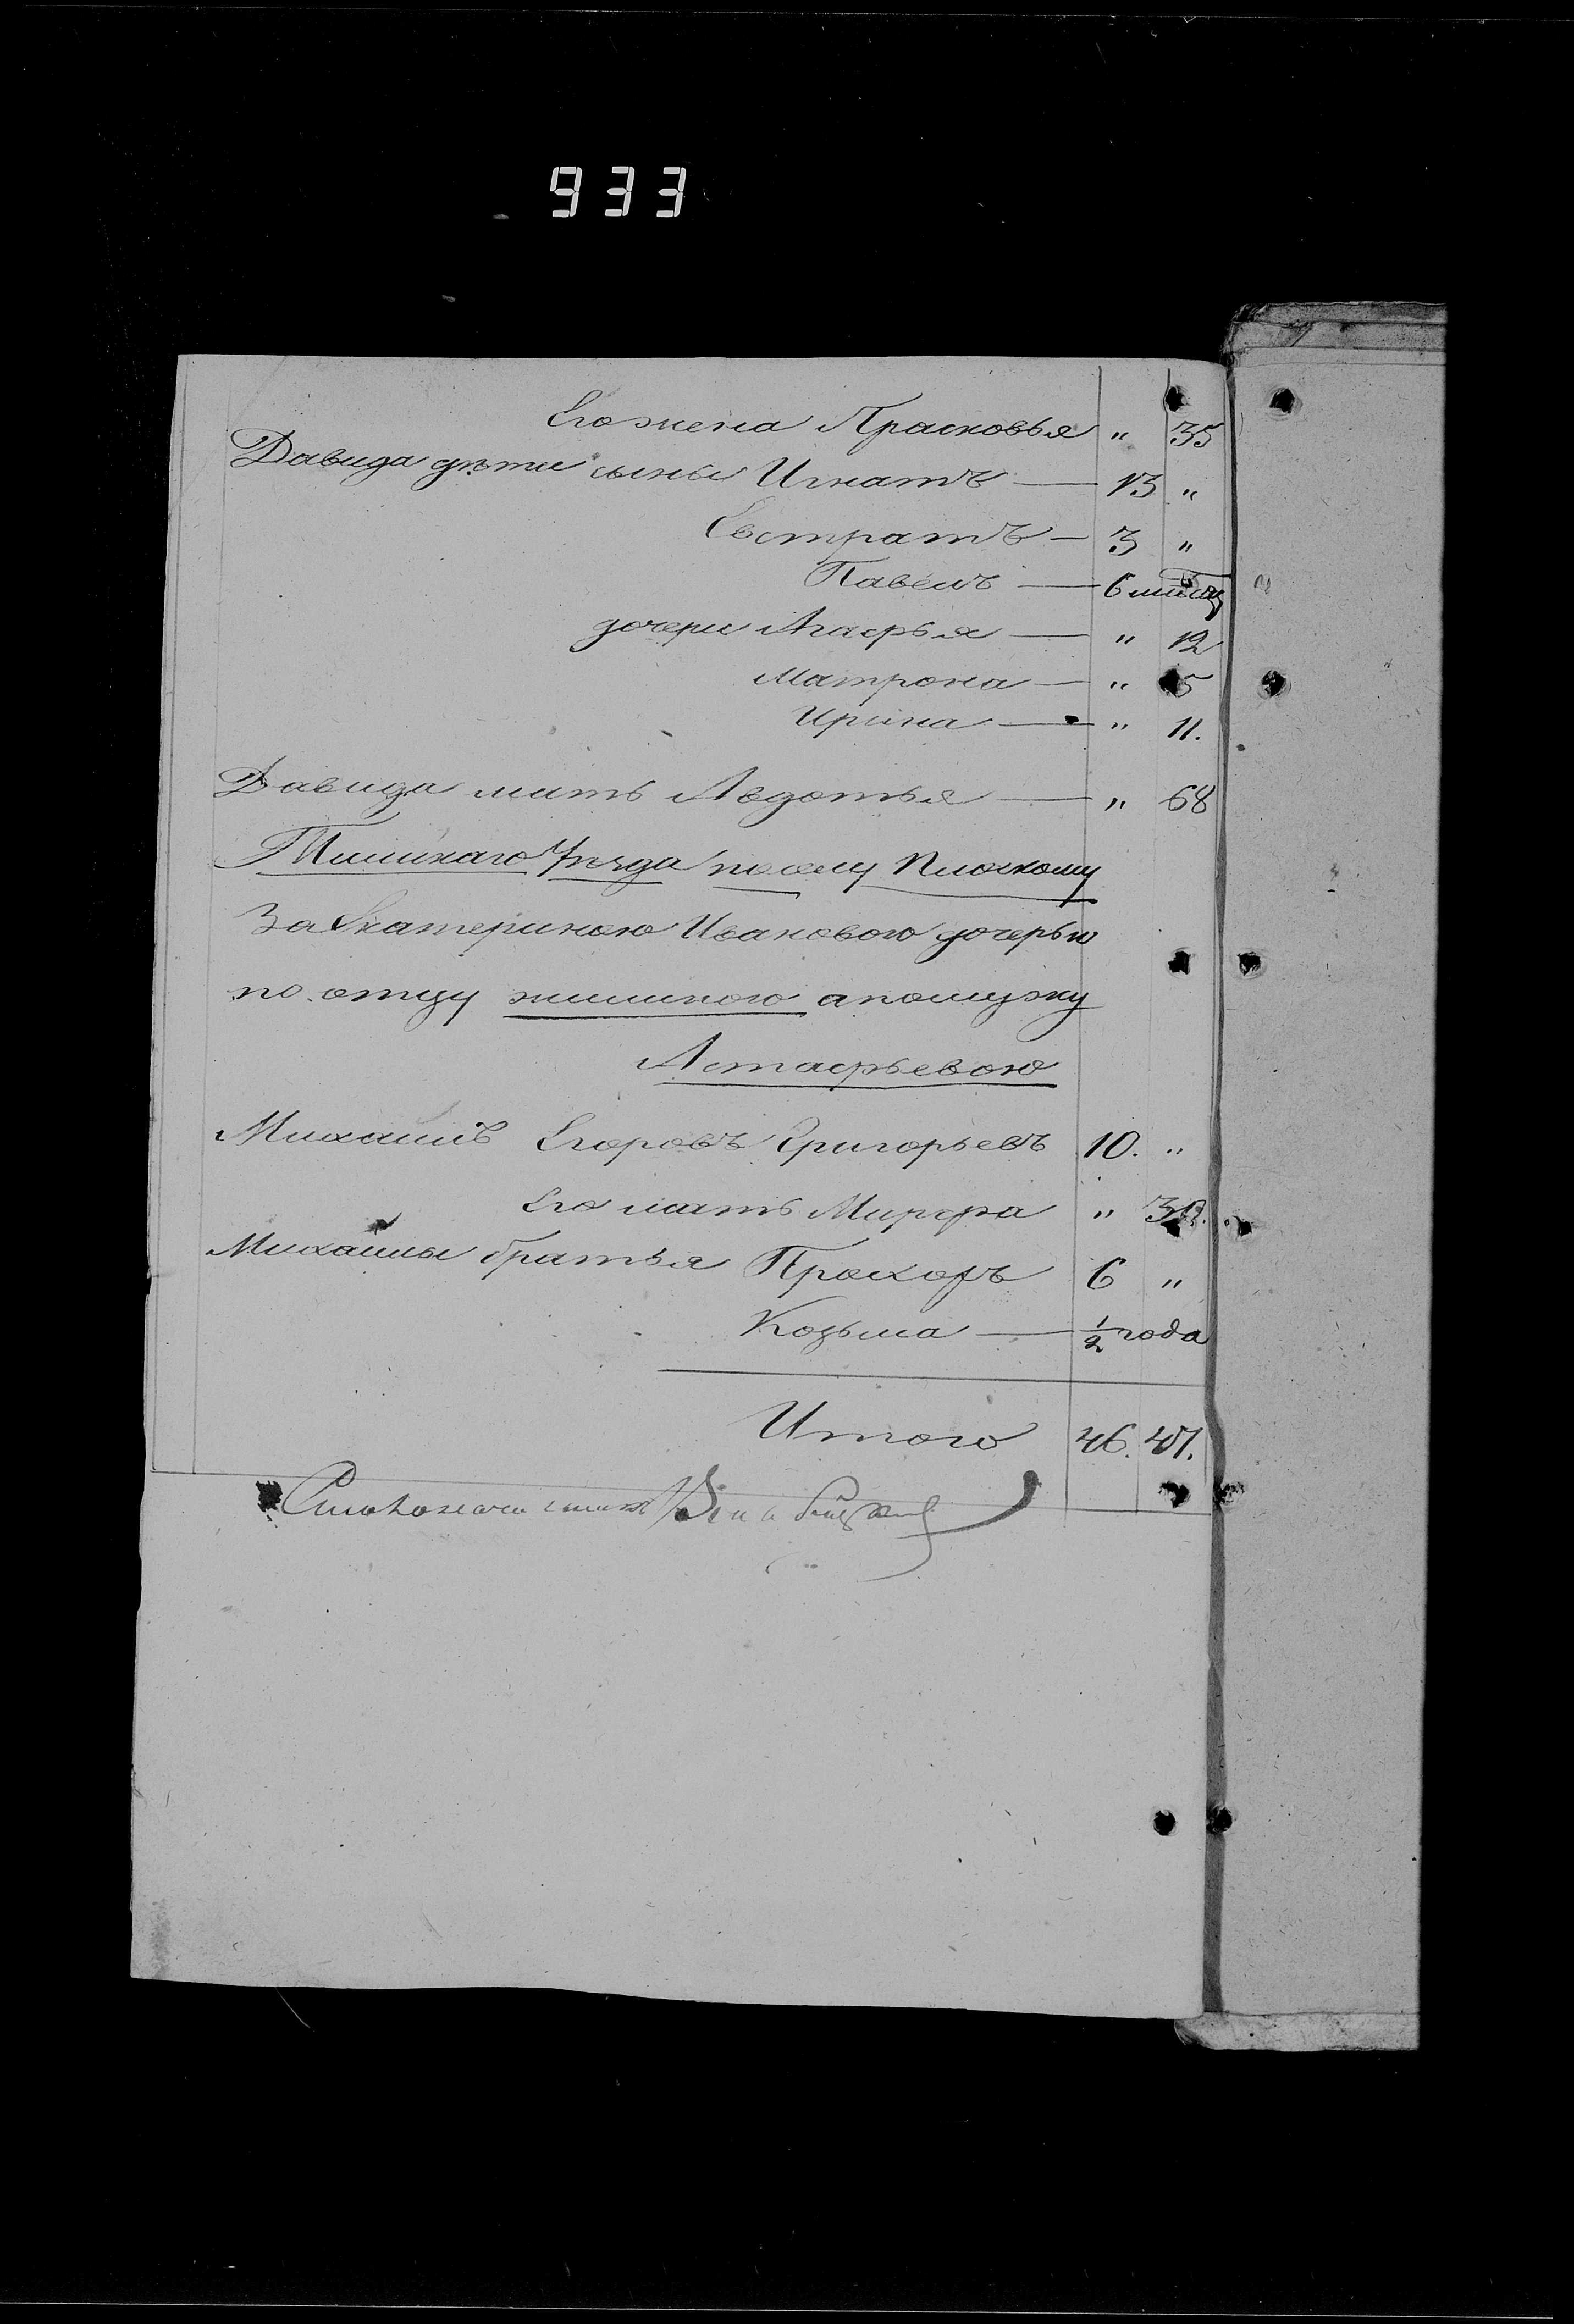 933
Его жена Прасковья " 35
Давида дѣти сыны Игнатъ — 13 "
Евстратъ — 3 "
Павелъ — 6 мѣсяц
дочери Агафья — " 12
Матрона — " 5
Ирина — " 11.
Давида мать Авдотья — " 68
Уѣзда по селу Плоскому
За Екатериною Ивановою дочерью
по отцу а по мужу
Астафьевою
Михаилъ Егоровъ Григорьевъ 10. "
Его мать Марфа "
Михайлы братья Прохоръ 6 "
Козьма — 1/2 года
Итого 46. 47.